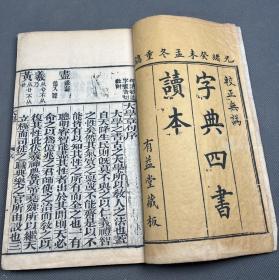 光緒癸未孟冬重
校正無譌
字典四書
讀本
有益堂藏板
大學章句序
大學之書古之大學所以教人之法也蓋自
天降生民則既莫不與之以仁義禮智
之性矣然其氣質之稟或不能齊是以不
能皆有以知其性之所有而全之也一有
聰明睿智能盡其性者出於其間則天必
命之以為億兆之君師使之治而教之以
復其性此伏羲神農黃帝堯舜所以繼天
立極而司徒之職典樂之官所由設也三
蓋
羲
黃